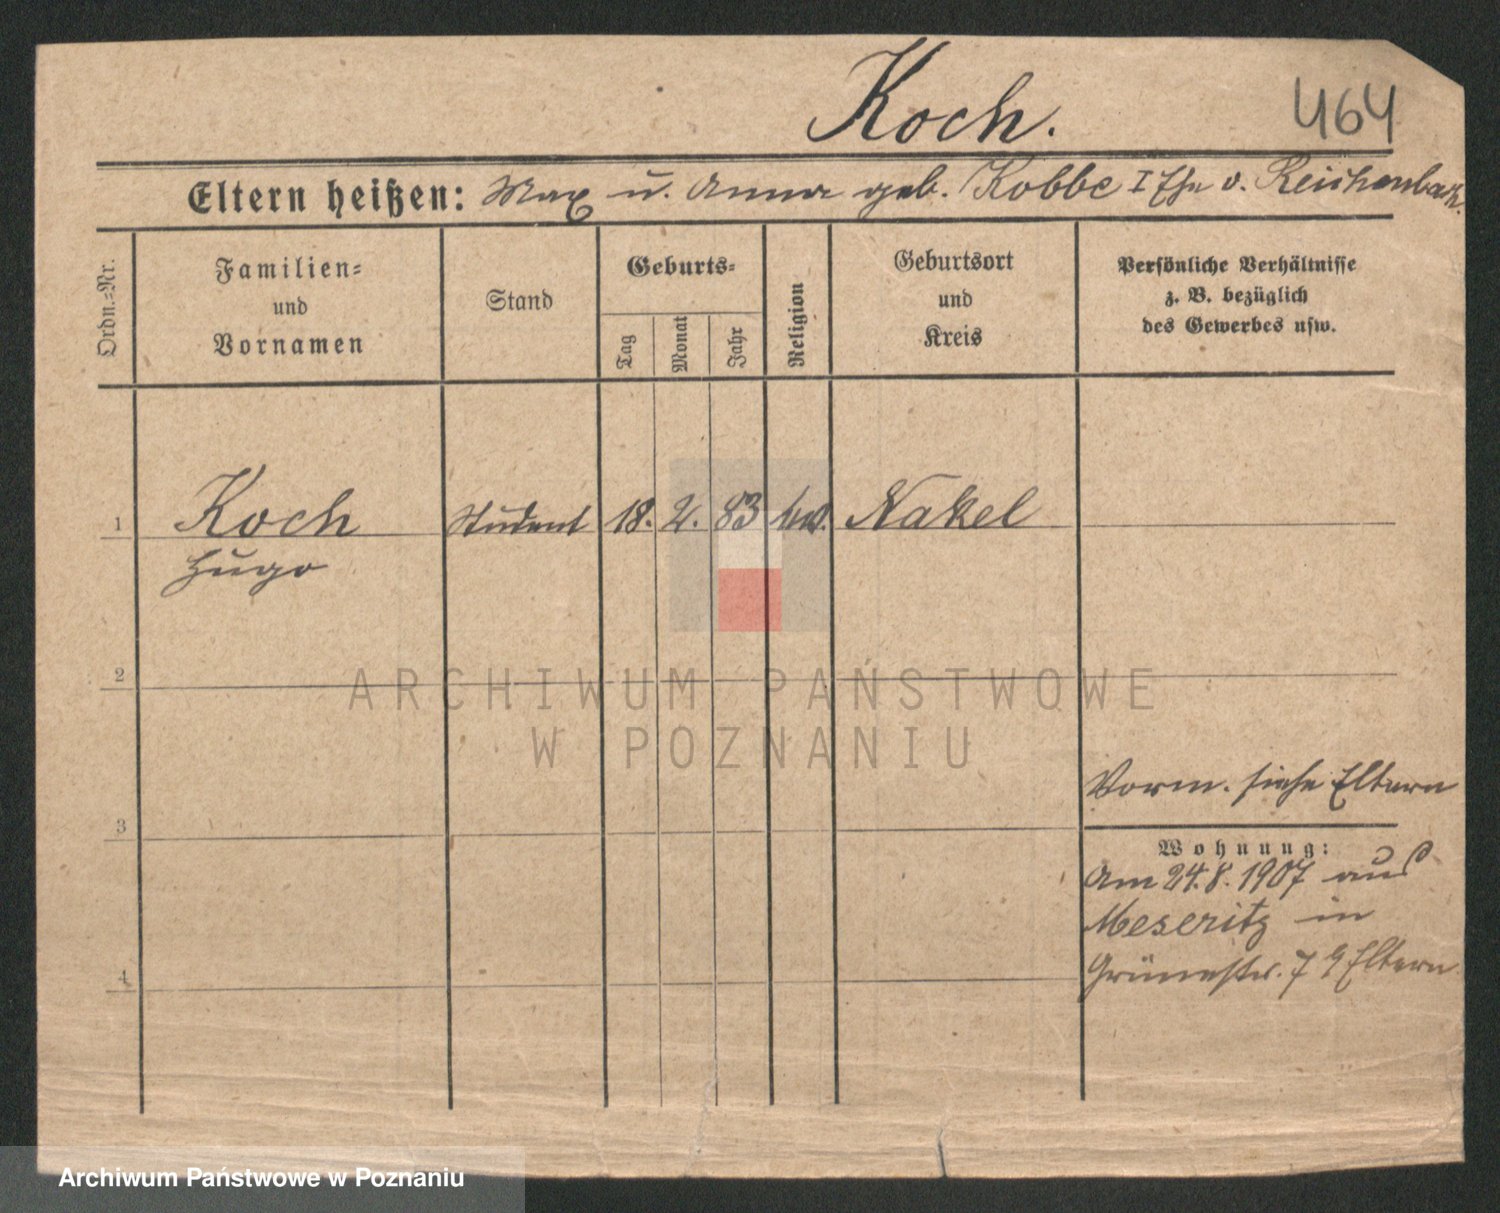 Koch.
464
Eltern heißen: Max u. Anna geb. Kobbe I Ehe v. Reichenbach.
Ordn.=Nr.
Familien=
und
Vornamen
Stand
Geburts=
Tag
Monat
Jahr
Religion
Geburtsort
und
Kreis
Persönliche Verhältnisse
z. B. bezüglich
des Gewerbes usw.
1
Koch
Student
18.
2.
83
Nakel
Hugo
2
3
Vorm. siehe Eltern
Wohnung:
Am 24.8.1907 aus
Meseritz in
4
Grünestr. 7 Eltern
ARCHIWUM PAŃSTWOWE
W POZNANIU
Archiwum Państwowe w Poznaniu